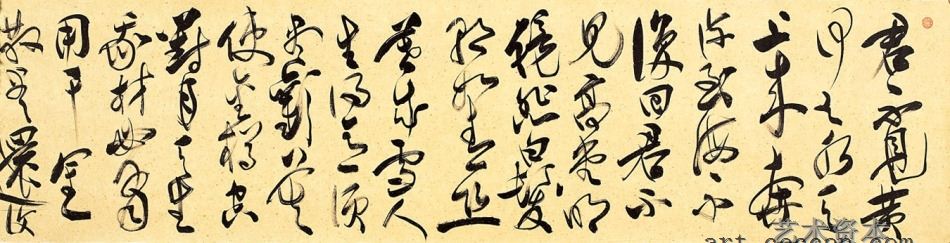 君不見黃
河之水天
上来奔
流到海不
復回君不
見高堂明
鏡悲白髮
朝如青絲
暮成雪人
生得意須
盡歡莫
使金樽空
對月天生
我材必有
用千金
散盡還復
艺术资本